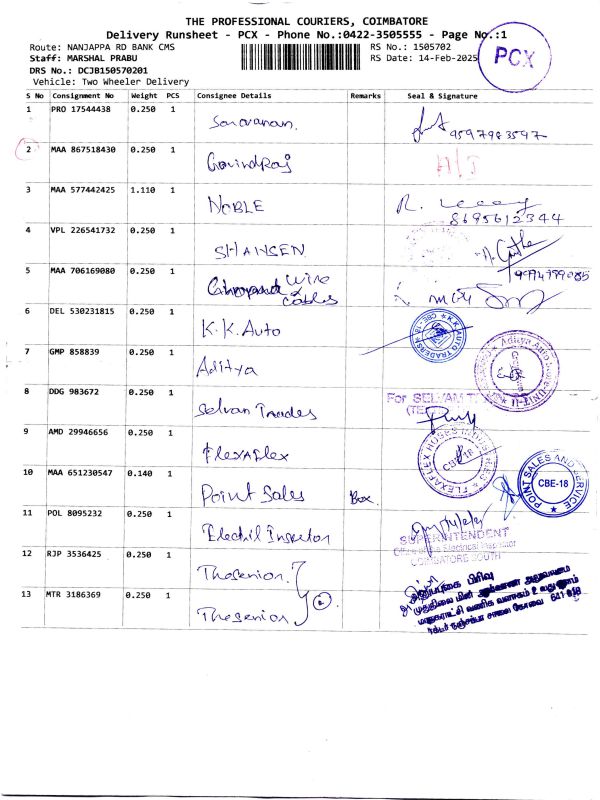 THE PROFESSIONAL COURIERS, COIMBATORE
Delivery Runsheet - PCX - Phone No.:0422-3505555 - Page No.:1
Route: NANJAPPA RD BANK CMS
RS No.: 1505702
Staff: MARSHAL PRABU
RS Date: 14-Feb-2025
PCX
DRS No.: DCJB150570201
Vehicle: Two Wheeler Delivery
S No Consignment No Weight PCS Consignee Details Remarks Seal & Signature
1 PRO 17544438 0.250 1 Saravanan 9597983597
2 MAA 867518430 0.250 1 Govindraj
3 MAA 577442425 1.110 1 NOBLE 8695612344
4 VPL 226541732 0.250 1 SHANSEN
5 MAA 706169080 0.250 1 wire & cables
6 DEL 530231815 0.250 1 K.K. Auto K.K. AUTO TRADERS CBE-18
7 GMP 858839 0.250 1 Aditya
8 DDG 983672 0.250 1 Selvan Traders For SELVAM
9 AMD 29946656 0.250 1 FlexAFlex FLEXAFLEX HOSES CBE-18
10 MAA 651230547 0.140 1 Point Sales Box POINT SALES AND SERVICE CBE-18
11 POL 8095232 0.250 1 Electril Inspector
SUPERINTENDENT
Office of the Electrical Inspector
COIMBATORE SOUTH
12 RJP 3536425 0.250 1
13 MTR 3186369 0.250 1 2